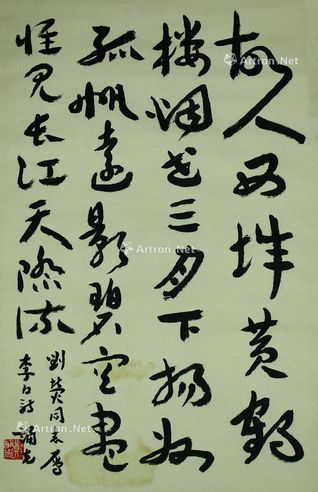 故人西辞黄鹤
楼烟花三月下扬州
孤帆远影碧空尽
惟见长江天际流
刘茨同志属
李白诗
Artron.Net
Artron.Net
Artron.Net
Artron.Net